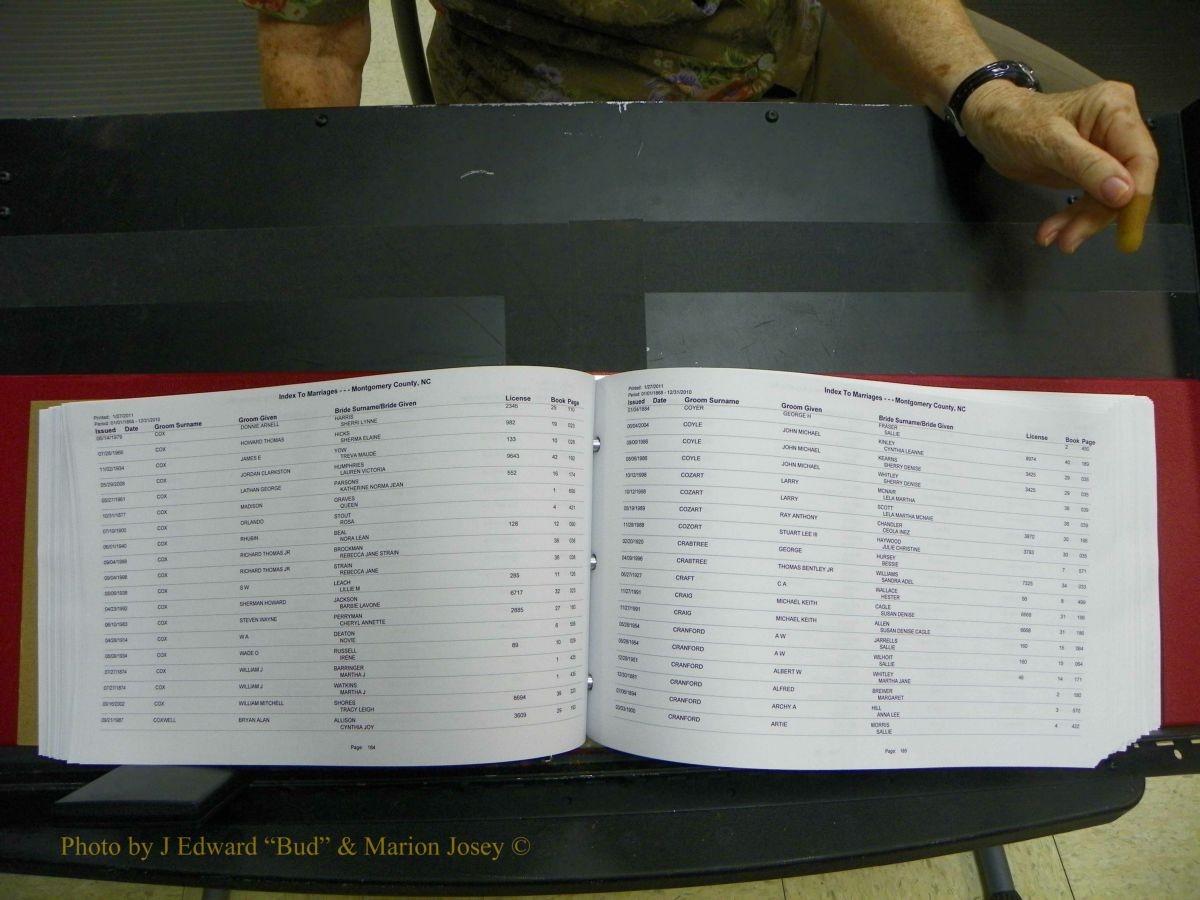 Index To Marriages - - - Montgomery County, NC
Printed: 1/27/2011
Period: 01/01/1868 - 12/31/2010
Issued Date Groom Surname Groom Given Bride Surname/Bride Given License Book Page
COX DONNIE ARNELL HARRIS 2346 25 110
SHERRI LYNNE
COX HOWARD THOMAS HICKS 982 19
SHERMA ELAINE
COX JAMES E YOW 133 10
TREVA MAUDE
COX JORDAN CLARKSTON HUMPHRIES 9643 42
LAUREN VICTORIA
COX LATHAN GEORGE PARSONS 552 16 174
KATHERINE NORMA JEAN
10/31/1877 COX MADISON GRAVES 1
QUEEN
07/10/1900 COX ORLANDO STOUT 4 421
ROSA
06/01/1940 COX RHUBIN BEAL 126 12
NORA LEAN
COX RICHARD THOMAS JR BROCKMAN 38
REBECCA JANE STRAIN
COX RICHARD THOMAS JR STRAIN 38
REBECCA JANE
COX S W LEACH 285 11
LILLIE M
04/23/1992 COX SHERMAN HOWARD JACKSON 6717 32
BARBIE LAVONE
06/10/1983 COX STEVEN WAYNE PERRYMAN 2885 27
CHERYL ANNETTE
COX W A DEATON 6
NOVIE
COX WADE O RUSSELL 89 10
IRENE
07/27/1874 COX WILLIAM J BARRINGER 1
MARTHA J
07/27/1874 COX WILLIAM J WATKINS 1
MARTHA J
COX WILLIAM MITCHELL SHORES 6694 39
TRACY LEIGH
03/21/1987 COXWELL BRYAN ALAN ALLISON 3609 29
CYNTHIA JOY
Page: 184
Index To Marriages - - - Montgomery County, NC
Printed: 1/27/2011
Period: 01/01/1868 - 12/31/2010
Issued Date Groom Surname Groom Given Bride Surname/Bride Given License Book Page
01/04/1884 COYER GEORGE H FRASER 2
SALLIE
COYLE JOHN MICHAEL KINLEY 8974 40 189
CYNTHIA LEANNE
COYLE JOHN MICHAEL KEARNS 3425 29 035
SHERRY DENISE
COYLE JOHN MICHAEL WHITLEY 3425 29 035
SHERRY DENISE
10/12/1998 COZART LARRY MCNAIR 38 039
LELA MARTHA
10/12/1998 COZART LARRY SCOTT 38 039
LELA MARTHA MCNAIR
COZART RAY ANTHONY CHANDLER 3970 30
CEOLA INEZ
11/28/1988 COZORT STUART LEE III HAYWOOD 3793 30 035
JULIE CHRISTINE
02/20/1920 CRABTREE GEORGE HURSEY 7 571
BESSIE
04/09/1996 CRABTREE THOMAS BENTLEY JR WILLIAMS 7325 34
SANDRA ADEL
CRAFT C A WALLACE 8 499
HESTER
11/27/1991 CRAIG MICHAEL KEITH CAGLE 6668 31
SUSAN DENISE
11/27/1991 CRAIG MICHAEL KEITH ALLEN 6668 31
SUSAN DENISE CAGLE
CRANFORD A W JARRELLS 160 15 064
SALLIE
CRANFORD A W WILHOIT 160 064
SALLIE
CRANFORD ALBERT W WHITLEY 14 171
MARTHA JANE
12/30/1881 CRANFORD ALFRED BREWER 2
MARGARET
CRANFORD ARCHY A HILL 3
ANNA LEE
CRANFORD ARTIE MORRIS 4 422
SALLIE
Page: 185
Photo by J Edward “Bud” & Marion Josey ©